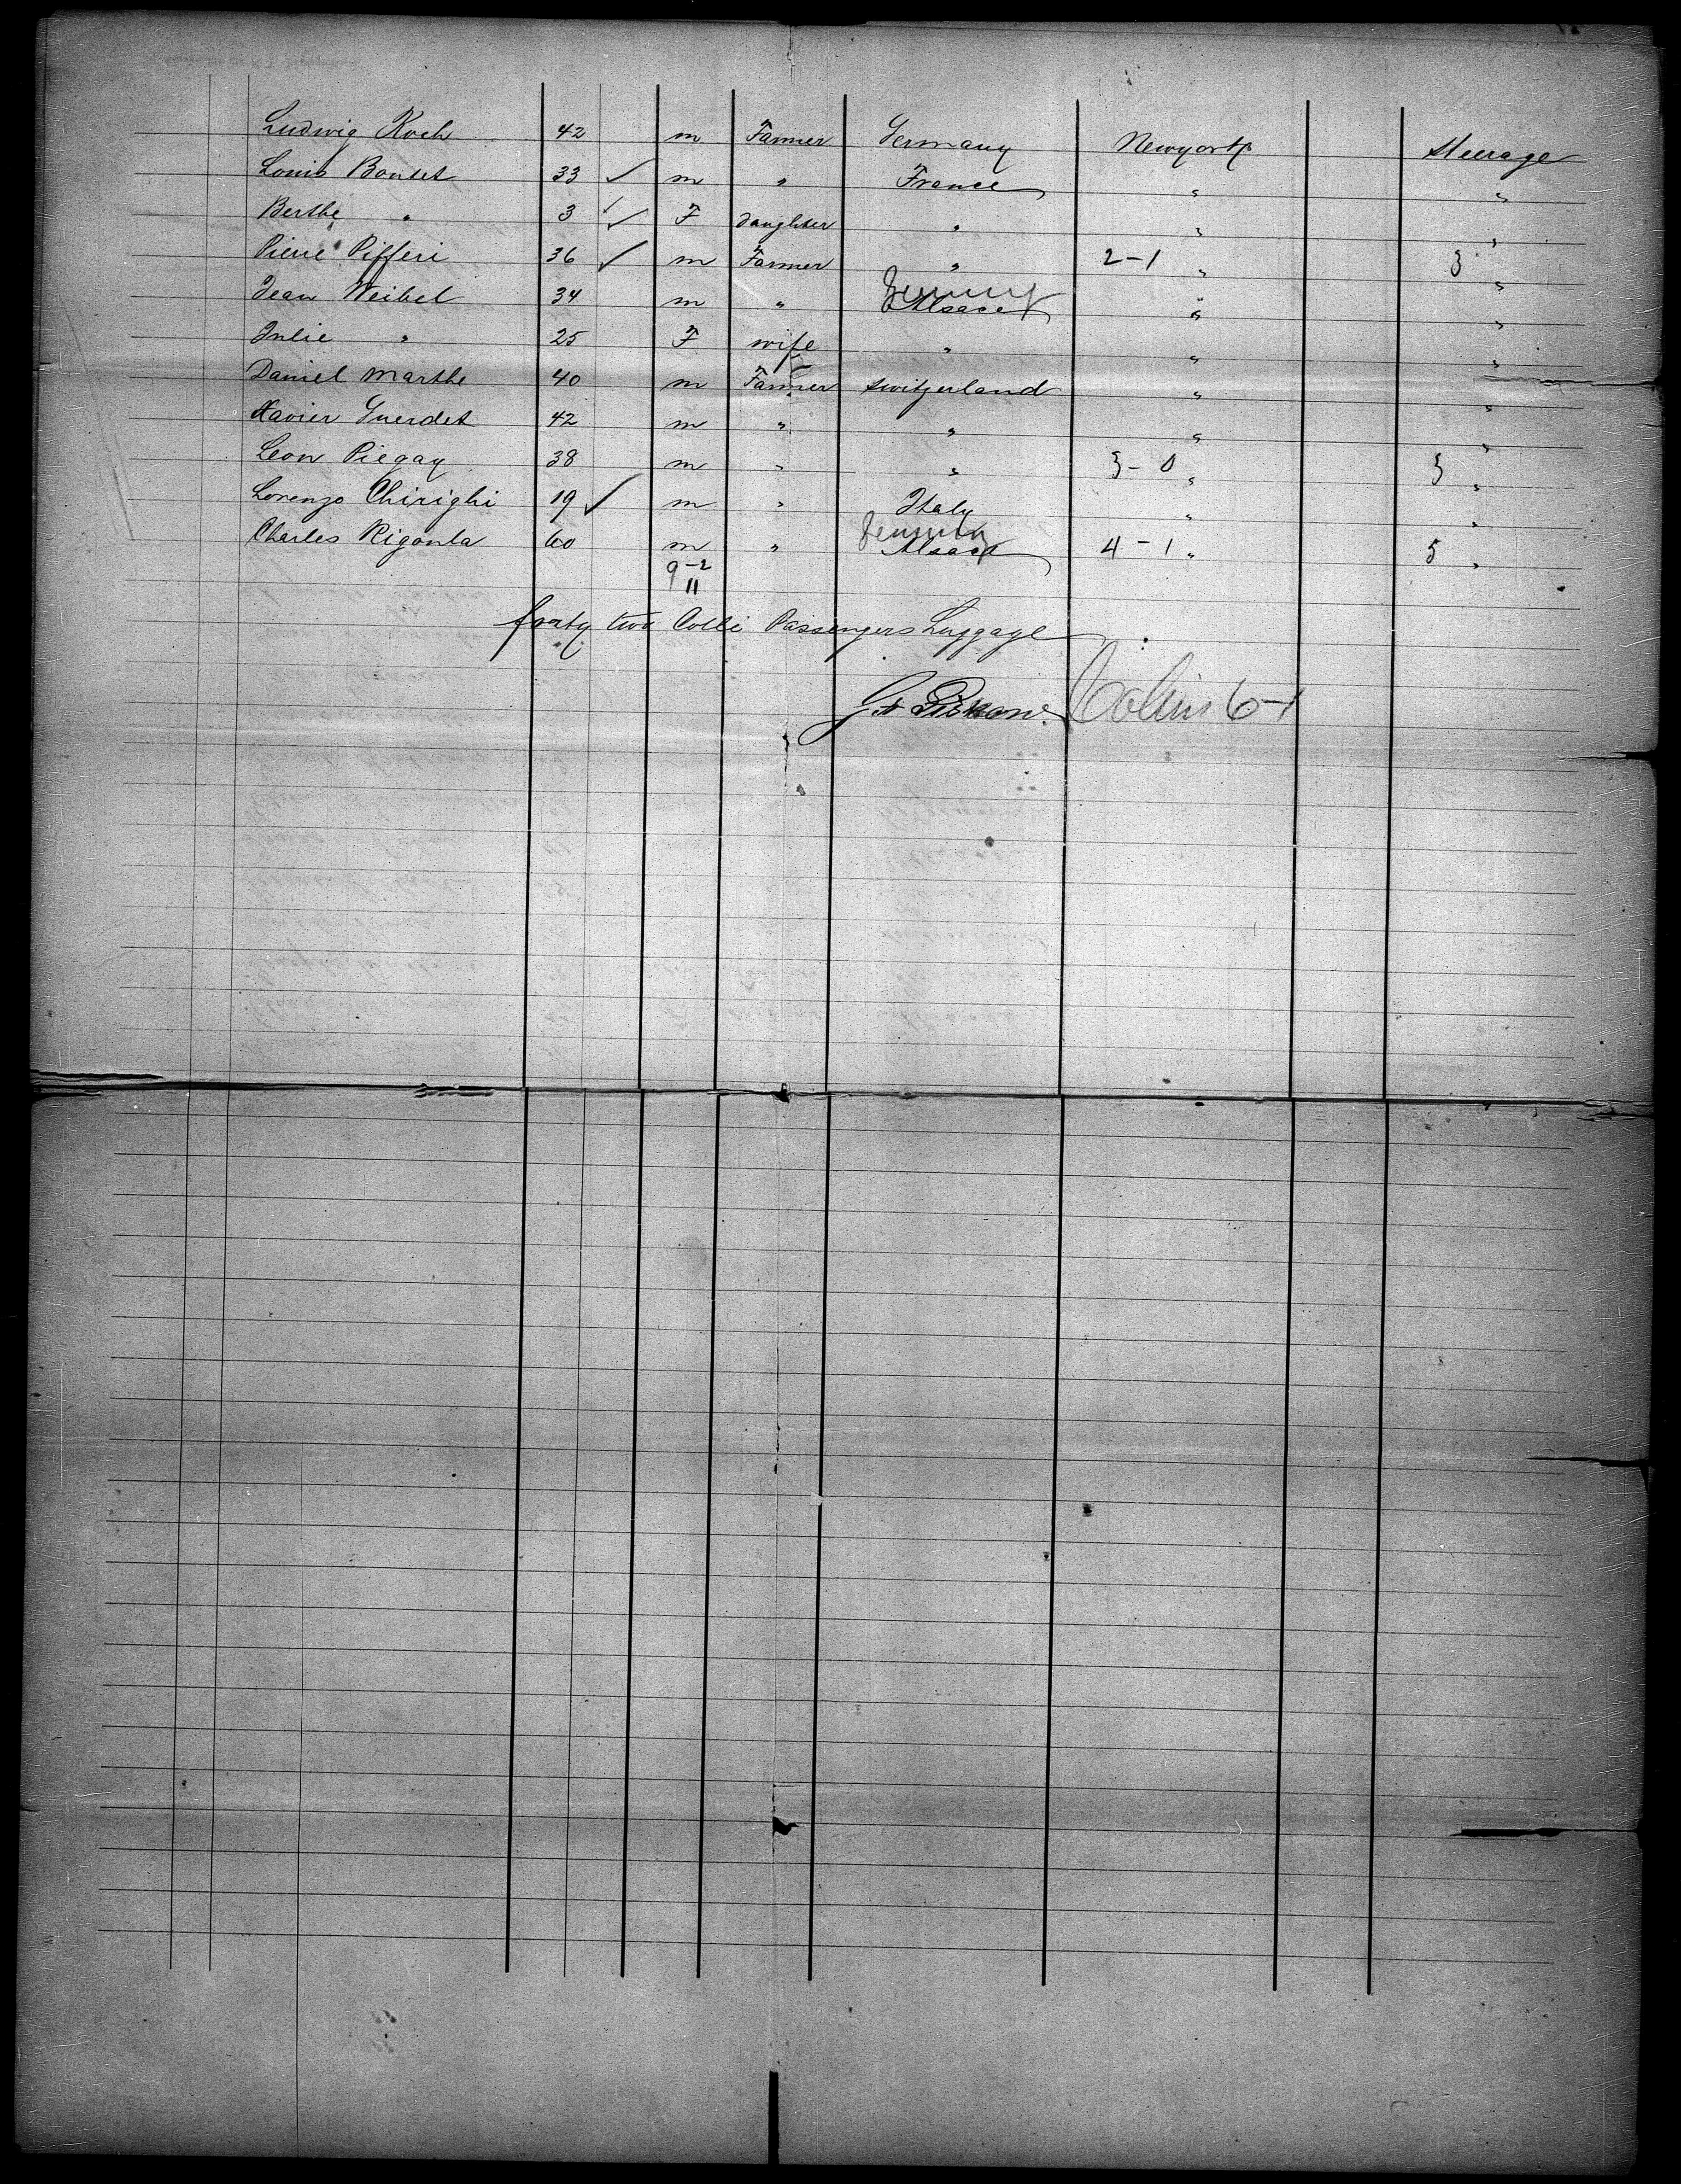 Ludwig Koch 42 m Farmer Germany Newyork Steerage
Louis Bontet 33 ✓ m " France " "
Berthe " 3 ✓ F daughter " " "
Pierre Pifferi 36 ✓ m Farmer " 2-1 " 3 "
Germany
Jean Weibel 34 m " Alsace " "
Julie " 25 F wife " " "
Daniel Marthe 40 m Farmer Switzerland " "
Xavier Guerdet 42 m " " " "
Leon Piegay 38 m " " 3-0 " 3 "
Lorenzo Chirighi 19 ✓ m " Italy " "
Germany
Charles Rigoula 60 m " Alsace 4-1 " 5 "
9-2
11
forty two Colli Passengers Luggage
6-1